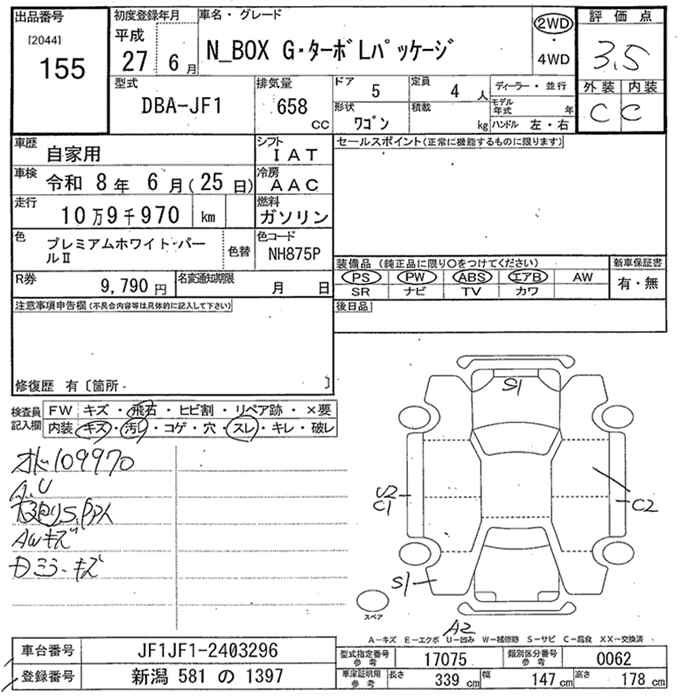 出品番号
[2044]
155
初度登録年月
平成
27 6月
車名・グレード
N_BOX G・ターボLパッケージ
2WD
・
4WD
評価点
3.5
外装 内装
C C
型式
DBA-JF1
排気量
658 CC
ドア
5
定員
4 人
形状
ワゴン
積載
kg
ディーラー・並行
モデル年式 年
ハンドル 左・右
車歴
自家用
シフト
IAT
車検
令和 8年 6月(25日)
冷房
AAC
走行
10万9千970 km
燃料
ガソリン
色
プレミアムホワイト・パールⅡ
色替
色コード
NH875P
R券
9,790円
名変通知期限
月 日
セールスポイント(正常に機能するものに限ります)
装備品(純正品に限り○をつけてください)
PS PW ABS エアB AW
SR ナビ TV カワ
新車保証書
有・無
後日品
注意事項申告欄(不具合内容等は具体的に記入して下さい)
修復歴 有〔箇所・ 〕
検査員記入欄
FW キズ・飛石・ヒビ割・リペア跡・×要
内装 キズ・汚レ・コゲ・穴・スレ・キレ・破レ
オド109970
A.U
AWキズ
S1
U2
C1
C2
S1
A2
スペア
A-キズ E-エクボ U-凹み W-補修跡 S-サビ C-腐食 XX-交換済
車台番号
JF1JF1-2403296
登録番号
新潟 581 の 1397
型式指定番号 参考
17075
類別区分番号 参考
0062
車庫証明用 参考
長さ 339 cm
幅 147 cm
高さ 178 cm